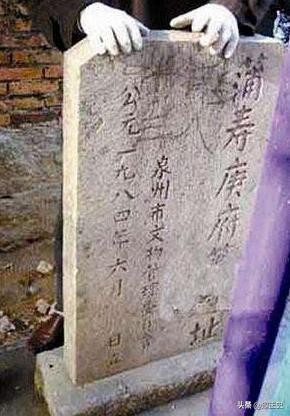 蒲寿庚府第 址
泉州市文物管理委员会
公元一九八四年六月 日立
头条